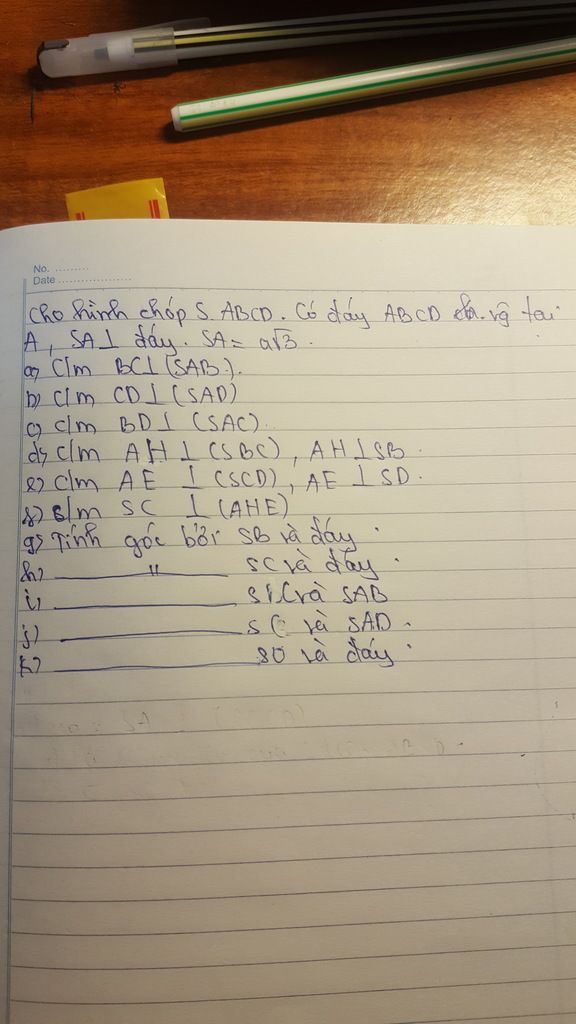 No. ..........
Date ....................
Cho hình chóp S.ABCD. Có đáy ABCD là vg tại
A, SA⊥ đáy. SA = a√3.
a) C/m BC⊥(SAB).
b) C/m CD⊥(SAD)
c) C/m BD⊥ (SAC).
d) C/m AH⊥(SBC), AH⊥SB.
e) C/m AE ⊥(SCD), AE ⊥SD.
f) C/m SC ⊥(AHE)
g) Tính góc bởi SB và đáy.
h) ______"______ SC và đáy.
i) ____________ SC và SAB
j) ____________ SC và SAD.
k) ____________ SO và đáy.